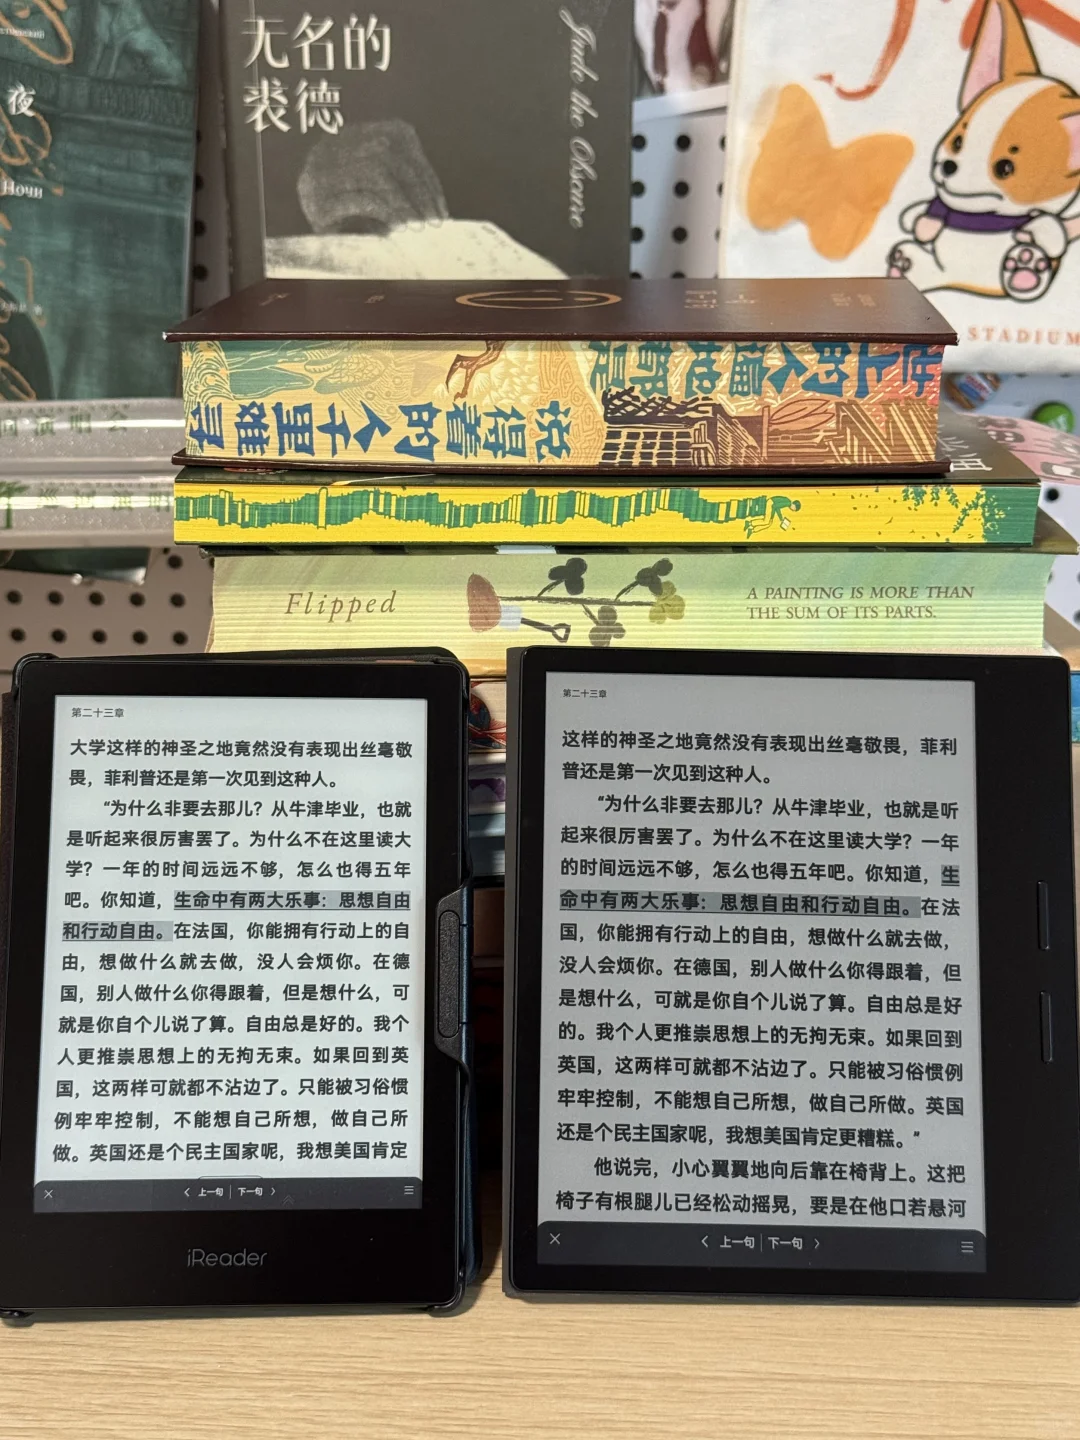 夜
Ночи
无名的
裘德
Jude the Obscure
STADIUM
世上的人遍地都是
说得着的人千里难寻
Flipped
A PAINTING IS MORE THAN
THE SUM OF ITS PARTS.
第二十三章
大学这样的神圣之地竟然没有表现出丝毫敬
畏，菲利普还是第一次见到这种人。
“为什么非要去那儿？从牛津毕业，也就
是听起来很厉害罢了。为什么不在这里读大
学？一年的时间远远不够，怎么也得五年
吧。你知道，生命中有两大乐事：思想自由
和行动自由。在法国，你能拥有行动上的自
由，想做什么就去做，没人会烦你。在德
国，别人做什么你得跟着，但是想什么，可
就是你自个儿说了算。自由总是好的。我个
人更推崇思想上的无拘无束。如果回到英
国，这两样可就都不沾边了。只能被习俗惯
例牢牢控制，不能想自己所想，做自己所
做。英国还是个民主国家呢，我想美国肯定
上一句 下一句
iReader
第二十三章
这样的神圣之地竟然没有表现出丝毫敬畏，菲利
普还是第一次见到这种人。
“为什么非要去那儿？从牛津毕业，也就是听
起来很厉害罢了。为什么不在这里读大学？一年
的时间远远不够，怎么也得五年吧。你知道，生
命中有两大乐事：思想自由和行动自由。在法
国，你能拥有行动上的自由，想做什么就去做，
没人会烦你。在德国，别人做什么你得跟着，但
是想什么，可就是你自个儿说了算。自由总是好
的。我个人更推崇思想上的无拘无束。如果回到
英国，这两样可就都不沾边了。只能被习俗惯例
牢牢控制，不能想自己所想，做自己所做。英国
还是个民主国家呢，我想美国肯定更糟糕。”
他说完，小心翼翼地向后靠在椅背上。这把
椅子有根腿儿已经松动摇晃，要是在他口若悬河
上一句 下一句